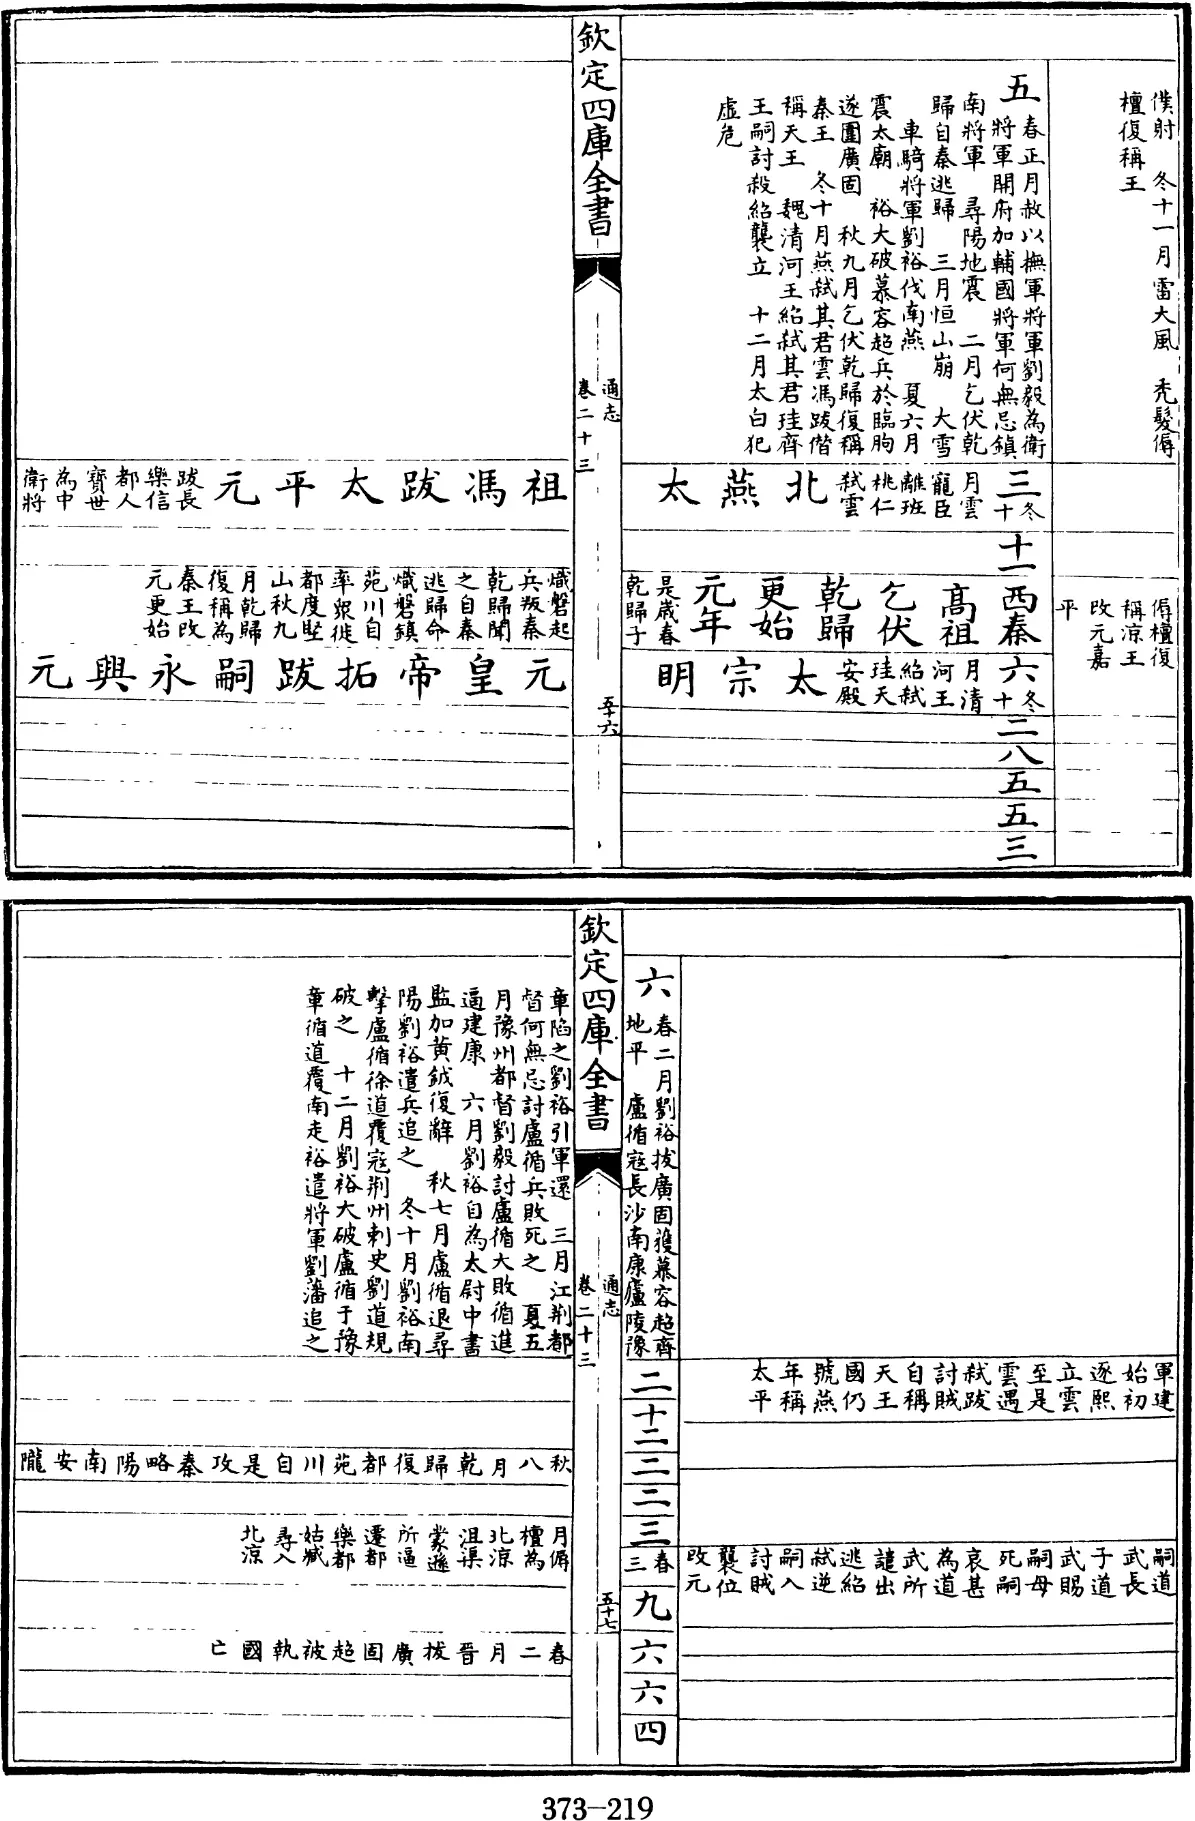 僕射 冬十一月雷大風 禿髮傉
檀復稱王
傉檀復
稱涼王
改元嘉
平
五
春正月赦以撫軍將軍劉毅為衛
將軍開府加輔國將軍何無忌鎮
南將軍 尋陽地震 二月乞伏乾
歸自秦逃歸 三月恒山崩 大雪
車騎將軍劉裕伐南燕 夏六月
震太廟 裕大破慕容超兵於臨朐
遂圍廣固 秋九月乞伏乾歸復稱
秦王 冬十月燕弒其君雲馮跋僭
稱天王 魏清河王紹弒其君珪齊
王嗣討殺紹襲立 十二月太白犯
虛危
三
冬十
月雲
寵臣
離班
桃仁
弒雲
北燕太
十一
西秦
高祖
乞伏
乾歸
更始
元年
是歲春
乾歸子
六
冬十
月清
河王
紹弒
珪天
安殿
太宗明
二
八
五
五
三
欽定四庫全書
通志
卷二十三
五十六
祖馮跋太平元
跋長
樂信
都人
寶世
為中
衛將
熾磐起
兵叛秦
乾歸聞
之自秦
逃歸命
熾磐鎮
苑川自
率眾徙
都度堅
山秋九
月乾歸
復稱為
秦王改
元更始
元皇帝拓跋嗣永興元
軍建
始初
逐熙
立雲
至是
雲遇
弒跋
討賊
自稱
天王
國仍
號燕
年稱
太平
嗣道
武長
子道
武賜
嗣母
死嗣
哀甚
為道
武所
譴出
逃紹
弒逆
嗣入
討賊
襲位
改元
六
春二月劉裕拔廣固獲慕容超齊
地平 盧循寇長沙南康廬陵豫
二
十二
二
二
三
春三
九
六
六
四
欽定四庫全書
通志
卷二十三
五十七
章陷之劉裕引軍還 三月江荆都
督何無忌討盧循兵敗死之 夏五
月豫州都督劉毅討盧循大敗循進
逼建康 六月劉裕自為太尉中書
監加黃鉞復辭 秋七月盧循退尋
陽劉裕遣兵追之 冬十月劉裕南
擊盧循徐道覆寇荆州刺史劉道規
破之 十二月劉裕大破盧循于豫
章循道覆南走裕遣將軍劉藩追之
秋八月乾歸復都苑川自是攻秦略陽南安隴
月傉
檀為
北涼
沮渠
蒙遜
所逼
遷都
樂都
姑臧
尋入
北涼
春二月晉拔廣固超被執國亡
373-219